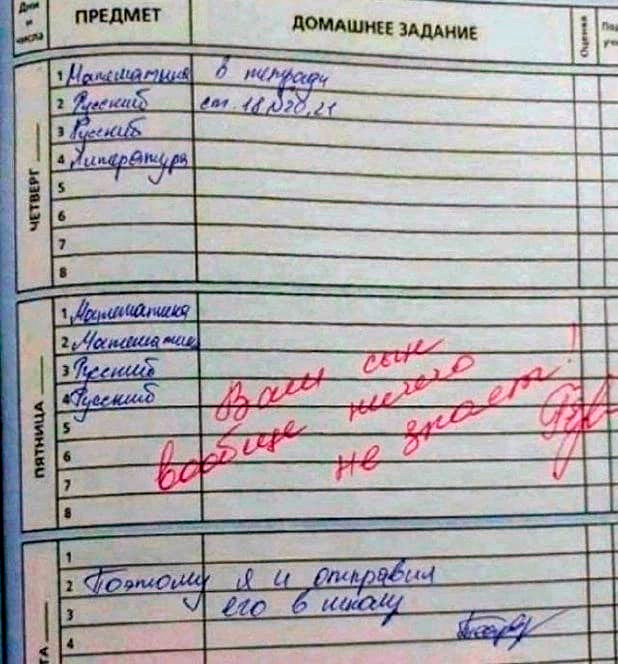 Дни и числа
ПРЕДМЕТ
ДОМАШНЕЕ ЗАДАНИЕ
Оценка
ЧЕТВЕРГ
1 Математика в тетради
2 Русский ст. 18, №20, 21
3 Русский
4 Литература
5
6
7
8
ПЯТНИЦА
1 Математика
2 Математика
3 Русский
4 Русский
5
6
7
8
Ваш сын
вообще ничего
не знает!
1
2 Поэтому я и отправил
3 его в школу
4